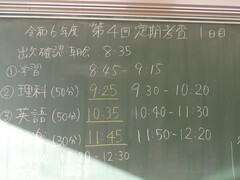 令和6年度 第4回定期考査 1日目
出欠確認・朝会 8:35
①学習 8:45-9:15
②理科(50分) 9:25 9:30-10:20
③英語(50分) 10:35 10:40-11:30
(30分) 11:45 11:50-12:20
-12:30